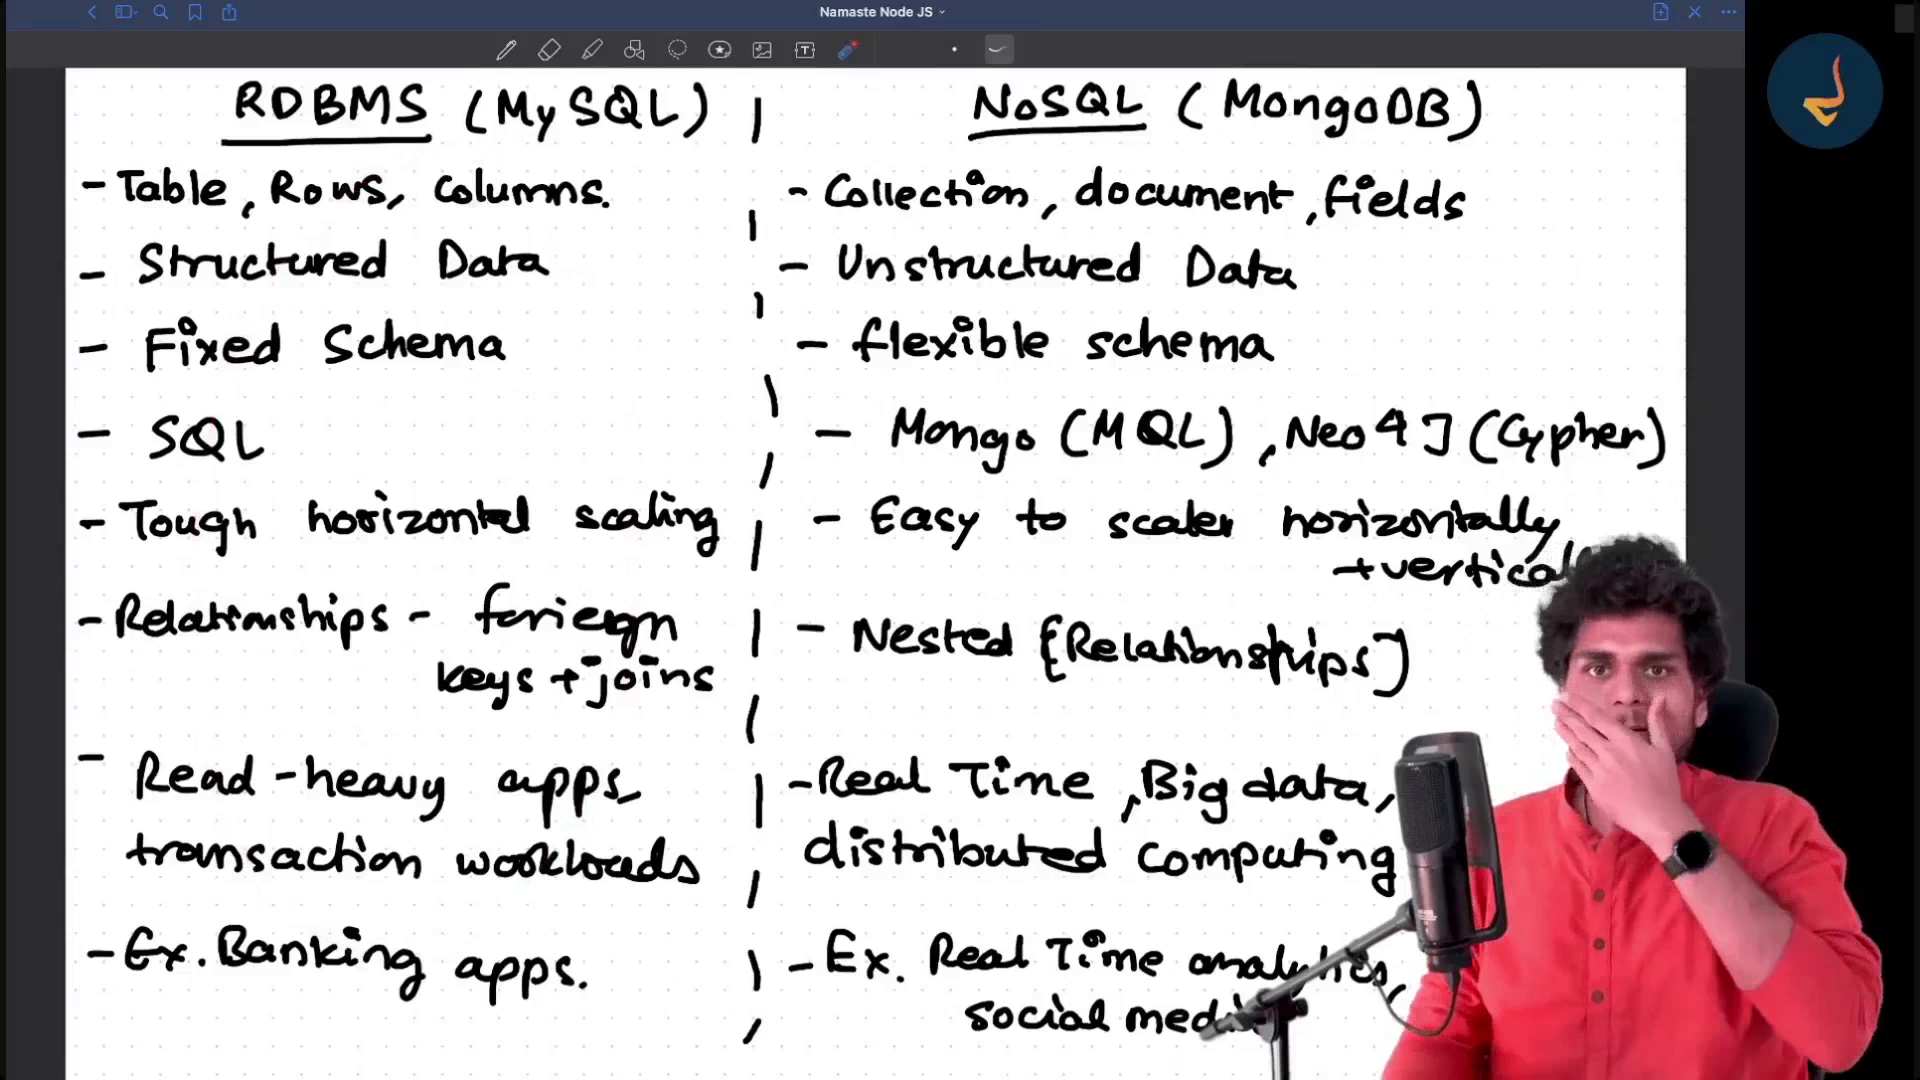 Namaste Node JS
RDBMS (MySQL)
- Table, Rows, columns.
- Structured Data
- Fixed Schema
- SQL
- Tough horizontal scaling
- Relationships - foriegn
keys + joins
- Read-heavy apps,
transaction workloads
- Ex. Banking apps.
NoSQL (MongoDB)
- Collection, document, fields
- Unstructured Data
- flexible schema
- Mongo (MQL), Neo4J (Cypher)
- Easy to scale horizontally
+ vertical
- Nested [Relationships]
- Real Time, Big data,
distributed computing
- Ex. Real Time analytics,
social media